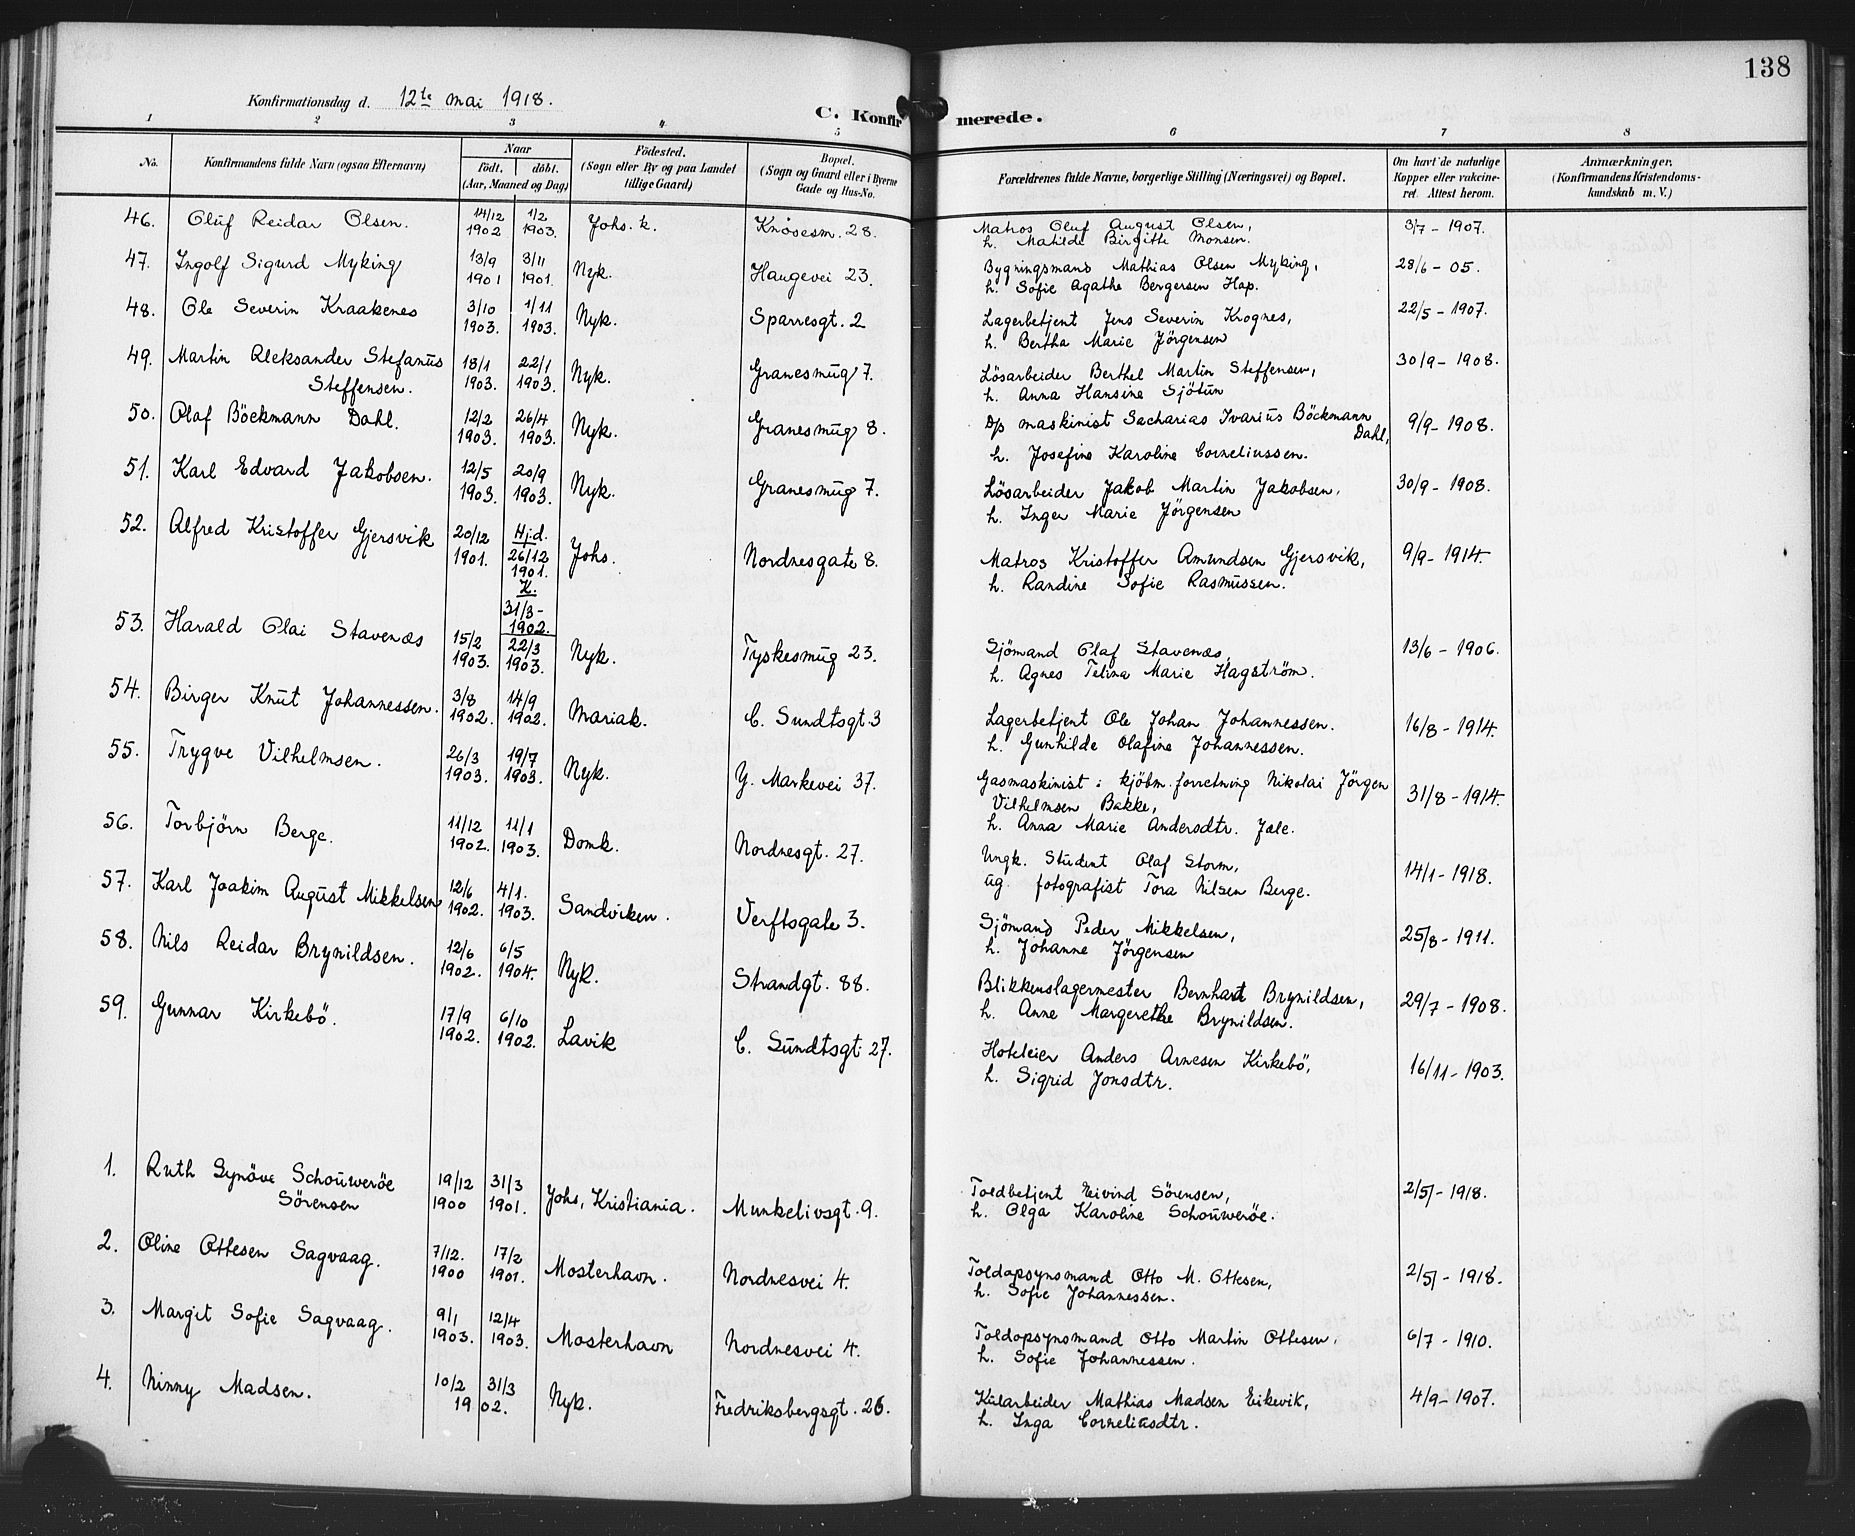 138
Konfirmationsdag d. 12te mai 1918.
C. Konfirmerede.
1 2 3 4 5 6 7 8
No. Konfirmandens fulde Navn (ogsaa Efternavn)
Naar
födt. döbt.
(Aar, Maaned og Dag)
Födested.
(Sogn eller By og paa Landet
tillige Gaard)
Bopæl.
(Sogn og Gaard eller i Byerne
Gade og Hus-No.
Forældrenes fulde Navne, borgerlige Stilling (Næringsvei) og Bopæl.
Om havt de naturlige
Kopper eller vakcine-
ret. Attest herom.
Anmærkninger.
(Konfirmandens Kristendoms-
kundskab m. V.)
46. Oluf Reidar Olsen. 14/12 1902 1/2 1903. Johs. k. Knösesm. 28. Matros Oluf August Olsen, 3/7 - 1907.
h. Matilde Birgitte Monsen.
47. Ingolf Sigurd Myking 13/9 1901 3/11 1901. Nyk. Haugevei 23. Bygningsmand Mathias Olsen Myking, 28/6 - 05.
h. Sofie Agathe Bergersen Hop.
48. Ole Severin Kraakenes 3/10 1903. 1/11 1903. Nyk. Sparresgt. 2 Lagerbetjent Jens Severin Krognes, 22/5 - 1907.
h. Bertha Marie Jörgensen
49. Martin Aleksander Stefanus 18/1 1903. 22/1 1903. Nyk. Granesmug 7. Lösarbeider Berthel Martin Steffensen, 30/9 - 1908.
Steffensen. h. Anna Hansine Sjötun
50. Olaf Böckmann Dahl. 12/2 1903. 26/4 1903. Nyk. Granesmug 8. D/p maskinist Sacharias Ivarius Böckmann 9/9 - 1908.
Dahl,
h. Josefine Karoline Corneliussen.
51. Karl Edvard Jakobsen. 12/5 1903. 20/9 1903. Nyk. Granesmug 7. Lösarbeider Jakob Martin Jakobsen, 30/9 - 1908.
h. Inger Marie Jörgensen
52. Alfred Kristoffer Gjersvik 20/12 1901. Hj.d. 26/12 1901. K. 31/3 - 1902. Johs. Nordnesgate 8. Matros Kristoffer Amundsen Gjersvik, 9/9 - 1914.
h. Randine Sofie Rasmussen.
53. Harald Olai Stavenæs 15/2 1903. 22/3 1903. Nyk. Tyskesmug 23. Sjömand Olaf Stavenæs, 13/6 - 1906.
h. Agnes Telina Marie Hagström.
54. Birger Knut Johannessen. 3/8 1902. 14/9 1902. Mariak. C. Sundtsgt 3 Lagerbetjent Ole Johan Johannessen. 16/8 - 1914.
h. Gunhilde Olafine Johannessen.
55. Trygve Vilhelmsen. 26/3 1903. 19/7 1903. Nyk. Y. Markevei 37. Gasmaskinist i kjöbm. forretning Nikolai Jörgen 31/8 - 1914.
Vilhelmsen Bakke,
h. Anna Marie Andersdtr. Jale.
56. Torbjörn Berge. 11/12 1902. 11/1 1903. Domk. Nordnesgt. 27. Ungk. Student Olaf Storm, 14/1 - 1918.
ug. fotografist Tora Nilsen Berge.
57. Karl Joakim August Mikkelsen 12/6 1902. 4/1. 1903. Sandviken. Verftsgate 3. Sjömand Peder Mikkelsen, 25/8 - 1911.
h. Johanne Jörgensen
58. Nils Reidar Brynildsen. 12/6 1902. 6/5 1904. Nyk. Strandgt. 88. Blikkenslagermester Bernhard Brynildsen, 29/7 - 1908.
h. Anne Margrethe Brynildsen.
59. Gunnar Kirkebö. 17/9 1902. 6/10 1902. Lavik C. Sundtsgt 27. Hoteleier Anders Arnesen Kirkebö, 16/11 - 1903.
h. Sigrid Jonsdtr.
1. Ruth Synöve Schouweröe 19/12 1900 31/3 1901. Johs, Kristiania. Munkelivsgt. 9. Toldbetjent Eivind Sörensen, 2/5 - 1918.
Sörensen h. Olga Karoline Schouweröe.
2. Oline Ottesen Sagvaag. 7/12. 1900 17/2 1901. Mosterhavn. Nordnesvei 4. Toldopsynsmand Otto M. Ottesen, 2/5 - 1918.
h. Sofie Johannessen.
3. Margit Sofie Sagvaag. 9/1 1903. 12/4 1903. Mosterhavn Nordnesvei 4. Toldopsynsmand Otto Martin Ottesen, 6/7 - 1910.
h. Sofie Johannessen.
4. Ninny Madsen. 10/2 31/3 1902. Nyk. Fredriksbergsgt. 26. Kularbeider Mathias Madsen Eikevik, 4/9 - 1907.
h. Inga Corneliasdtr.